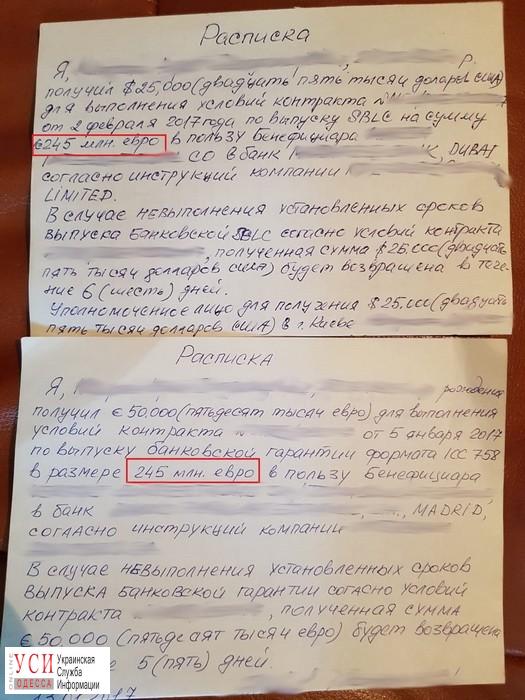 Расписка
Я, , Р.
получил $25,000 (двадцать пять тысяч доларов сша)
для выполнения условий контракта N 7
от 2 февраля 2017 года по выпуску SBLC на сумму
€245 млн. евро в пользу Бенефициара
со в банк K, DUBAI
согласно инструкций компании
LIMITED.
В случае невыполнения установленных сроков
выпуска Банковской SBLC согасно условий контракта
, полученная сумма $25,000 (двадцать
пять тысяч долларов сша) будет возвращена в тече-
ние 6 (шесть) дней.
Уполномоченное лицо для получения $25.000 (двадцать
пять тысяч долларов сша) в г. Киеве
Расписка
Я, , рождения
получил €50.000 (пятьдесят тысяч евро) для выполнения
условий контракта N от 5 января 2017
по выпуску банковской гарантии формата ICC 758
в размере 245 млн. евро в пользу Бенефициара
в банк , MADRID,
согласно инструкций компании
В случае невыполнения установленных сроков
выпуска Банковской гарантии согасно условий
контракта , полученная сумма
€50.000 (пятьдесят тысяч евро) будет возвращена
е 5 (пять) дней.
2017
ONLINE
УСИ
ОДЕССА
Украинская
Служба
Информации